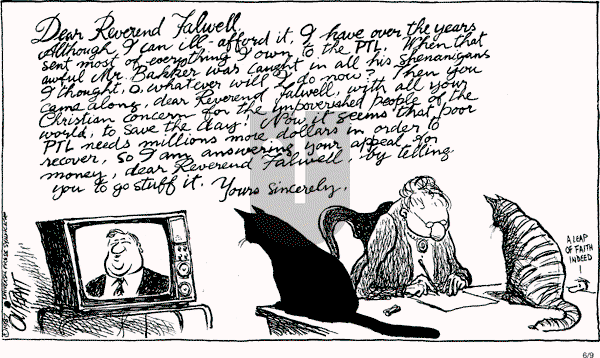 Dear Reverend Falwell,
Although I can ill-afford it, I have over the years
sent most of everything I own to the PTL. When that
awful Mr. Bakker was caught in all his shenanigans
I thought, O, whatever will I do now? Then you
came along, dear Reverend Falwell, with all your
Christian concern for the impoverished people of the
world, to save the day! Now it seems that poor
PTL needs millions more dollars in order to
recover, so I am answering your appeal for
money, dear Reverend Falwell, by telling
you to go stuff it. Yours Sincerely,
A LEAP
OF FAITH
INDEED
!
OLIPHANT
UNIVERSAL PRESS SYNDICATE
6/9